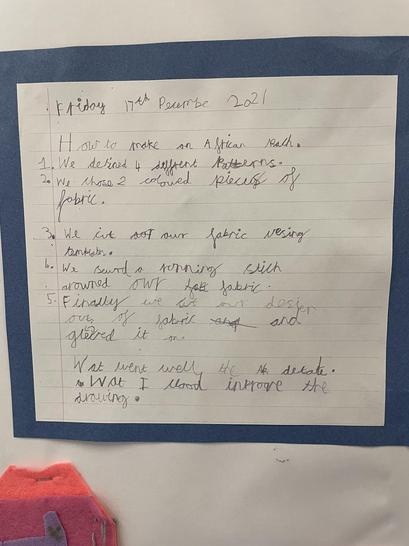 Friday 17th Decembe 2021
How to make an African Bath.
1. We desined 4 diffrent Patterns.
2. We chose 2 coloured pieces of
fabric.
3. We cut out our fabric using
4. We sewd a running stich
arowned our fabric.
5. Finally we cut our desien
out of fabric and
glueed it on.
Wat went well, the
Wat I Would improve the
drawing.